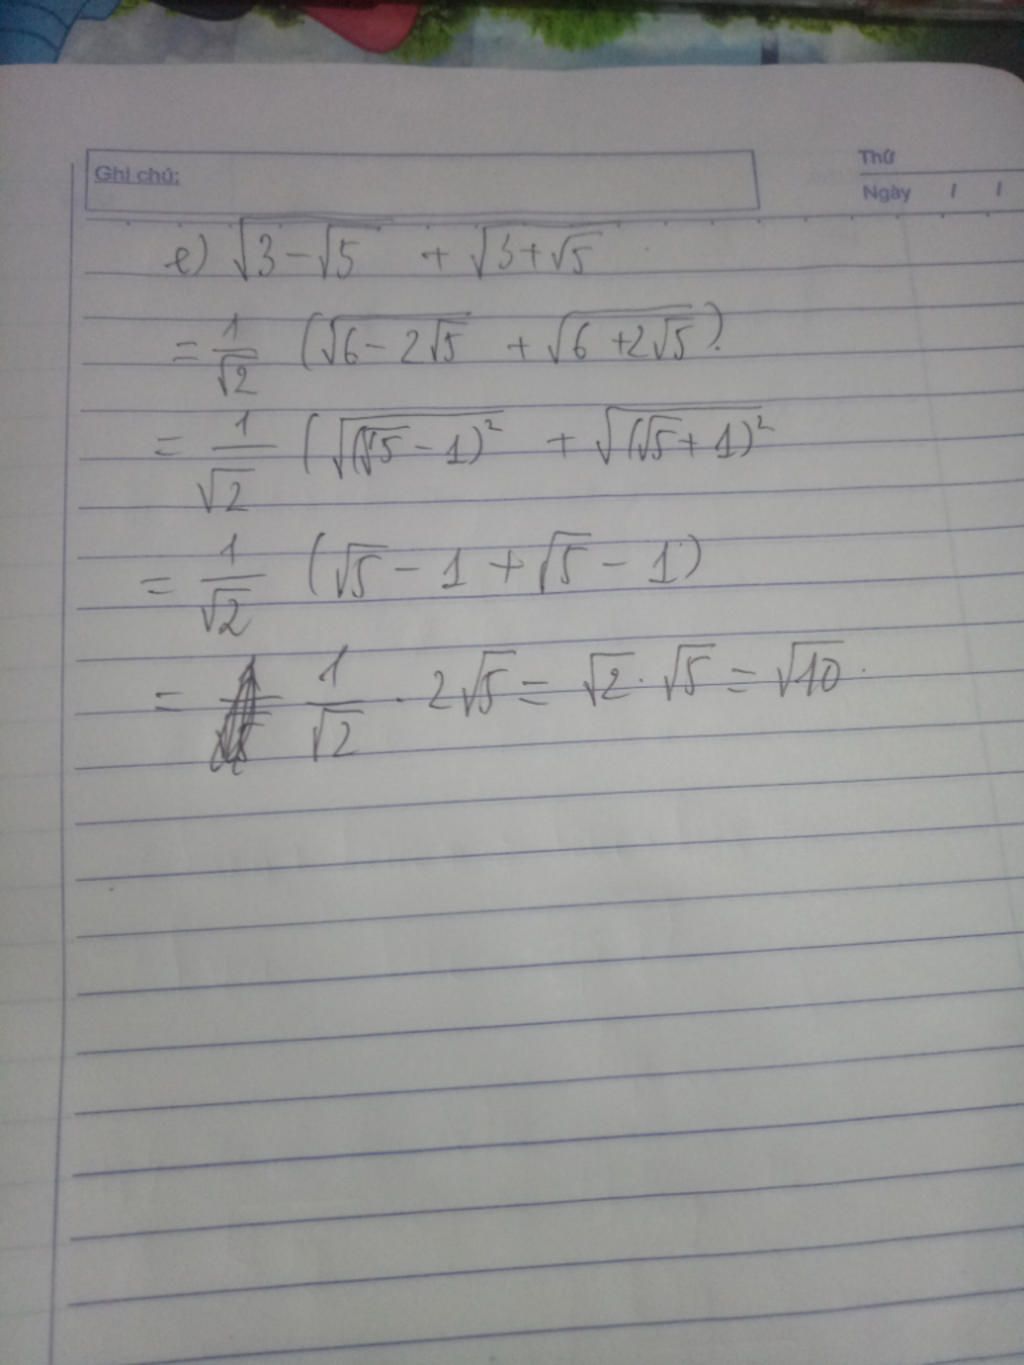 Ghi chú:
Thứ
Ngày / /
e) √(3-√5) + √(3+√5)
= 1/√2 (√(6-2√5) + √(6+2√5))
= 1/√2 (√((√5-1)²) + √((√5+1)²)
= 1/√2 (√5 - 1 + √5 - 1)
= 1/√2 . 2√5 = √2 . √5 = √10.